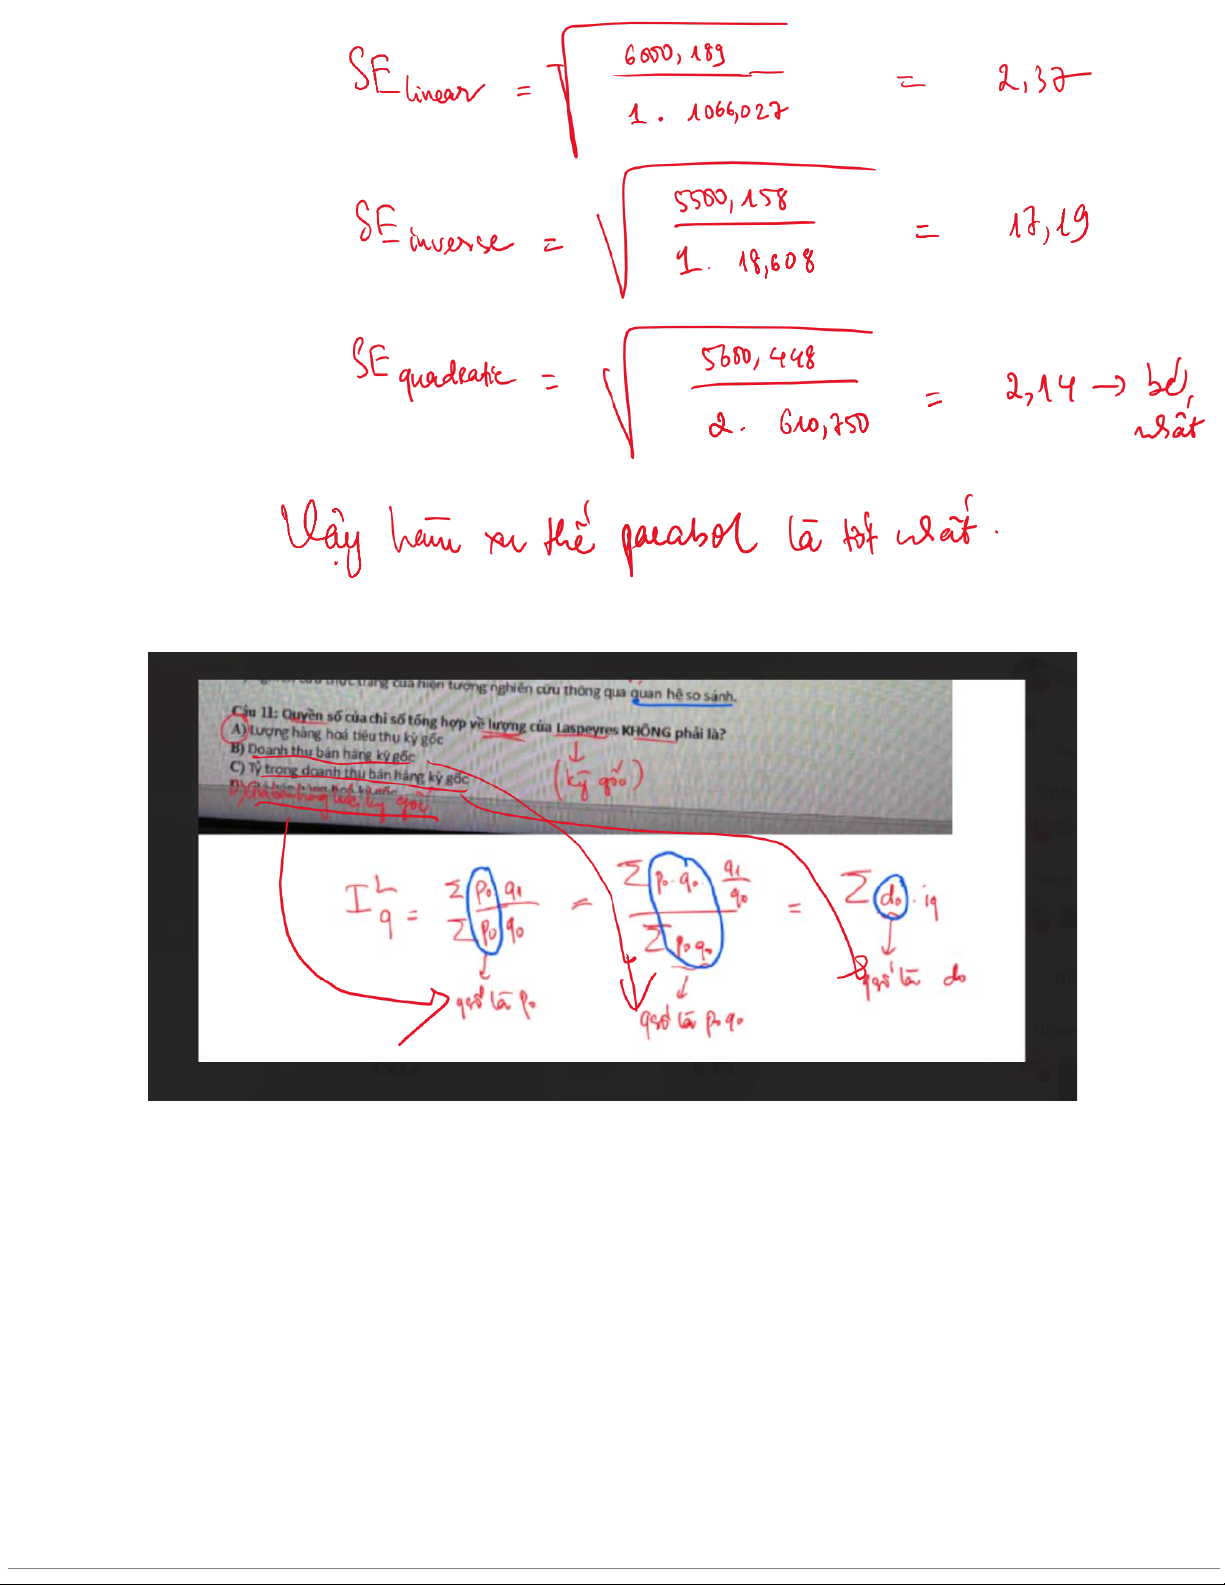 SE linear = √ 6000,189 / 1 . 1066,027 = 2,37
SE inverse = √ 5500,158 / 1 . 18,608 = 17,19
SE quadratic = √ 5600,448 / 2 . 610,750 = 2,14 → bé nhất
Vậy hàm xu thế parabol là tốt nhất.
trạng của hiện tượng nghiên cứu thông qua quan hệ so sánh.
Câu 11: Quyền số của chỉ số tổng hợp về lượng của Laspeyres KHÔNG phải là?
A) Lượng hàng hoá tiêu thụ kỳ gốc
B) Doanh thu bán hàng kỳ gốc
C) Tỷ trọng doanh thu bán hàng kỳ gốc
(kỳ gốc)
D) Giá bán hàng hoá kỳ gốc
I^L_q = Σ p₀ q₁ / Σ p₀ q₀ = Σ p₀ . q₀ . q₁/q₀ / Σ p₀ q₀ = Σ d₀ . iq
qsố là p₀
qsố là p₀ q₀
qsố là d₀